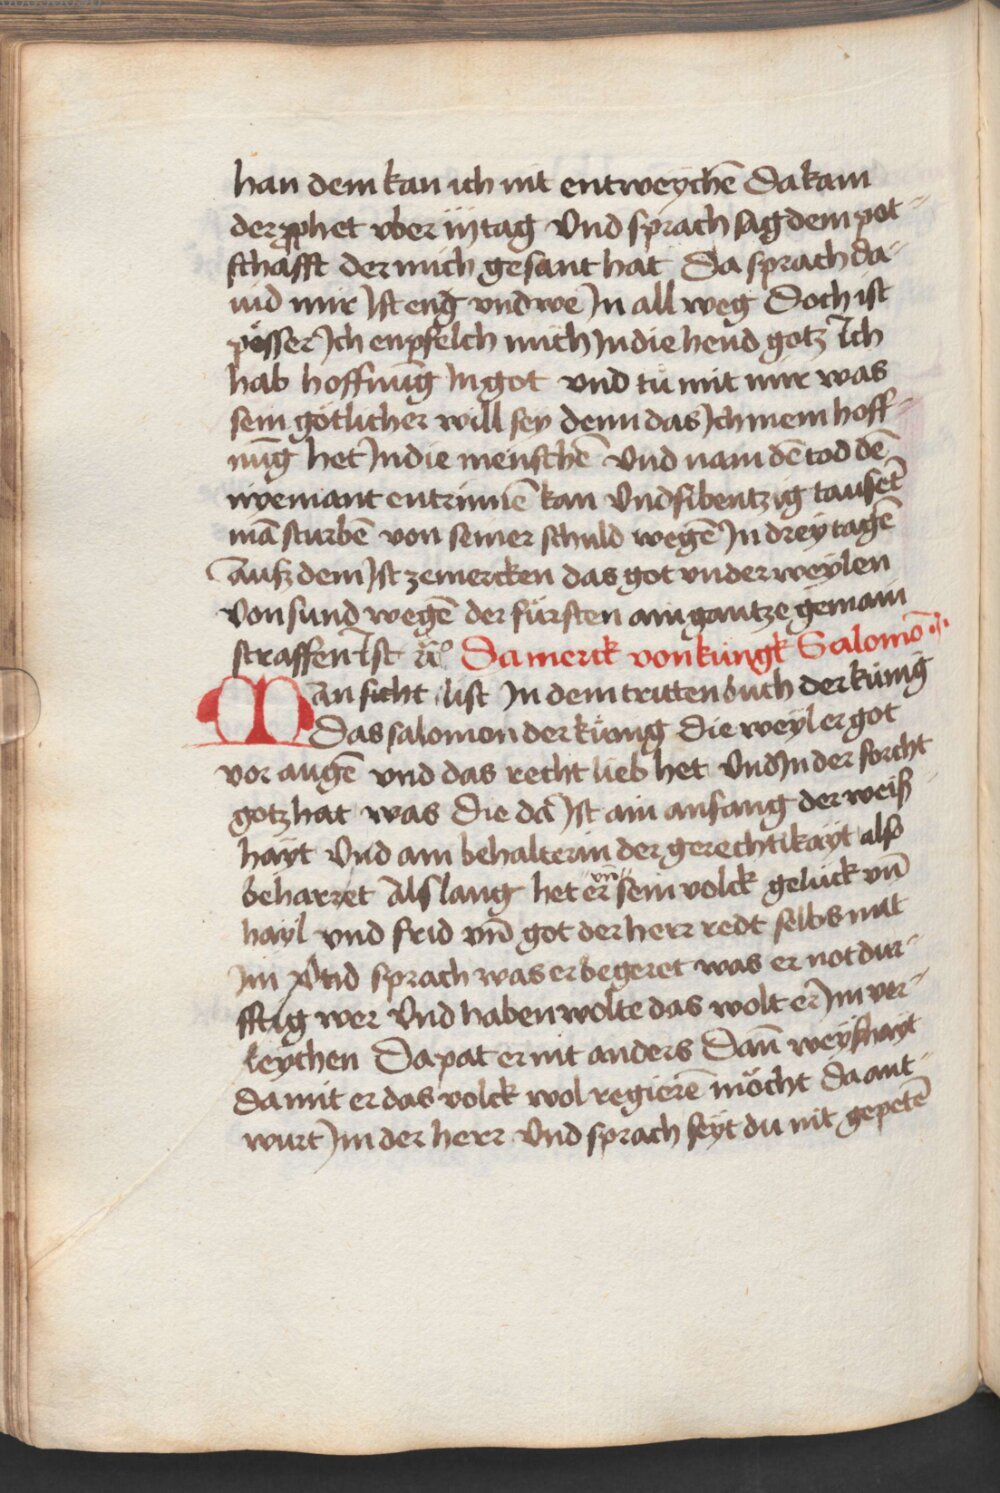 han dem kan ich nit entweychē Da kam
der ꝓphet vber iij tag Vnd sprach sag dem pot-
schafft der mich gesant hat Da sprach da-
uid mir Ist eng vnd we In all weg Doch ist
pesser Ich enpfelch mich In die hend gotz Ich
hab hoffnūg In got vnd tů mit mir was
sein götlicher will sey denn das Ich mein hoff-
nūg het In die menschē Vnd nam dē tod dē
nyemant entrinnē kan Vnd sibentzig tausēt
mā sturbē von seiner schuld wegē In drey tagē
Auſz dem Ist ze mercken das got vnderweylen
Von sund wegē der fürsten ain gantze gemain
straffen Ist Da merck von küngk Salomō
MAn sicht list In dem tritten buch der künig
Das salomon der küong Die weyl er got
vor augē vnd das recht lieb het Vnd In der forcht
gotz hat was Die dā Ist ain anfang der weiß
hayt Vnd ain behalterin der gerechtikayt also
beharret Als lang het er vn̄ sein volck gelück vn̄
hayl vnd frid vn̄ got der herr redt selbs mit
Im vnd sprach was er begeret was er notdur-
fftig wer Vnd haben wolte das wolt er Im ver-
leychen Da pat er nit anders Dan̄ weyßhayt
da mit er das volck wol regierē möcht Da ant-
wurt Im der herr Vnd sprach seyt du nit gepetē